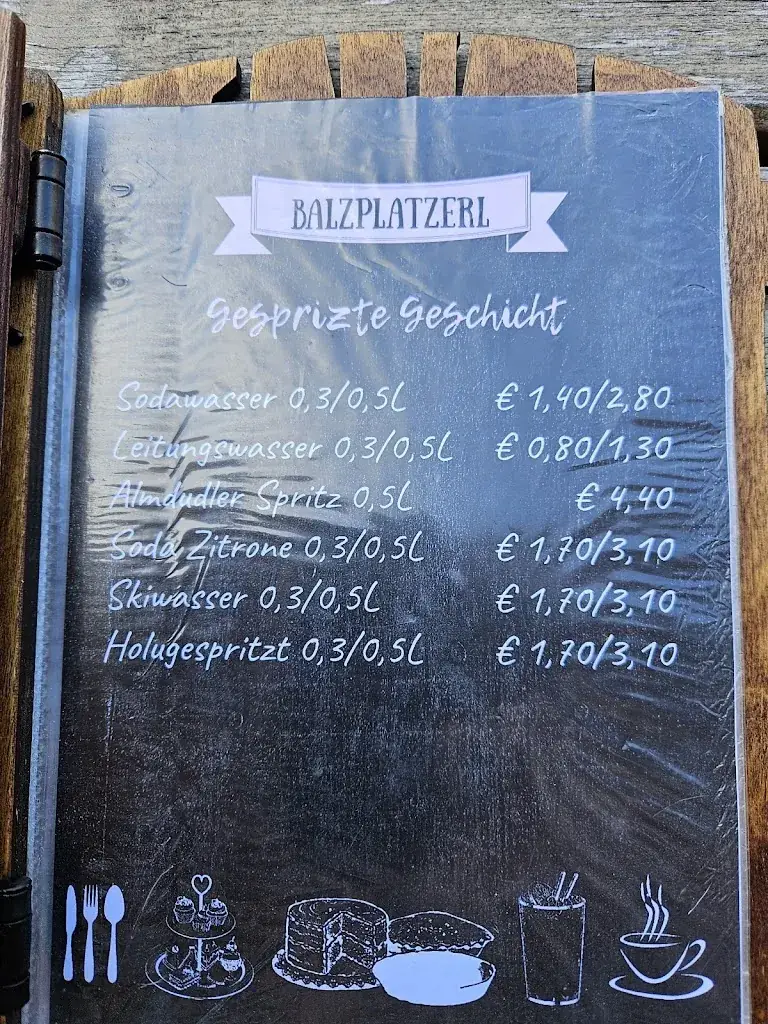 BALZPLATZERL
Gesprizte Geschicht
Sodawasser 0,3/0,5L € 1,40/2,80
Leitungswasser 0,3/0,5L € 0,80/1,30
Almdudler Spritz 0,5L € 4,40
Soda Zitrone 0,3/0,5L € 1,70/3,10
Skiwasser 0,3/0,5L € 1,70/3,10
Holugespritzt 0,3/0,5L € 1,70/3,10